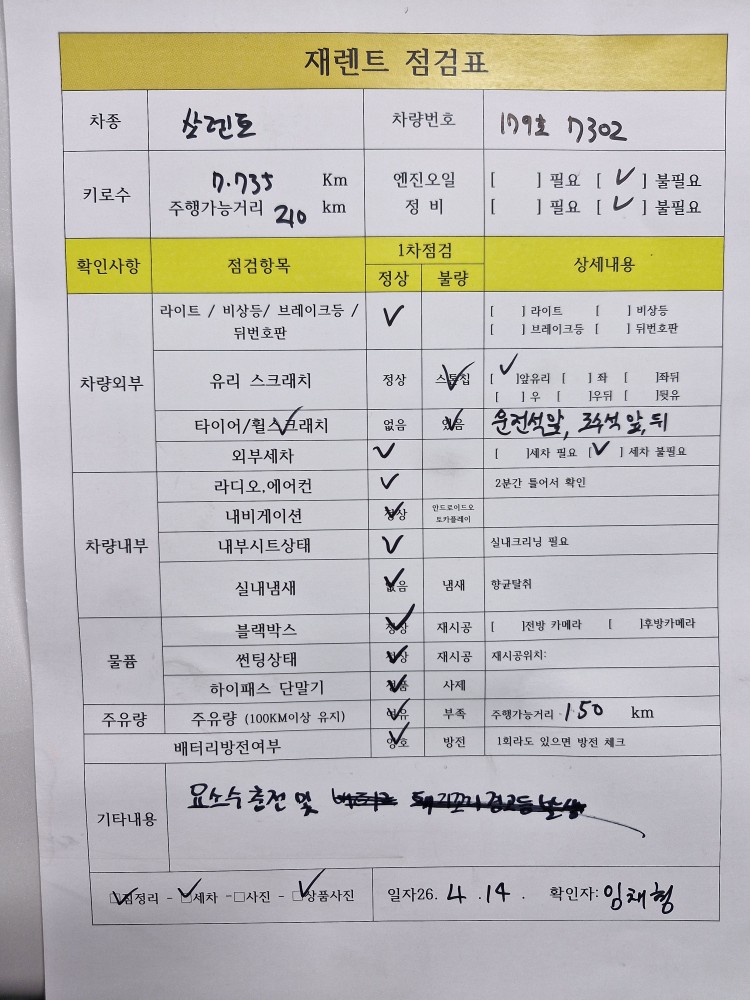 재렌트 점검표
차종 쏘렌토 차량번호 179호 7302
키로수 7.735 Km 엔진오일 [ ] 필요 [ ✓ ] 불필요
주행가능거리 210 km 정 비 [ ] 필요 [ ✓ ] 불필요
확인사항 점검항목 1차점검 상세내용
정상 불량
차량외부
라이트 / 비상등/ 브레이크등 / 뒤번호판 ✓ [ ] 라이트 [ ] 비상등
[ ] 브레이크등 [ ] 뒤번호판
유리 스크래치 정상 스톤칩 ✓ [ ✓ ]앞유리 [ ] 좌 [ ]좌뒤
[ ] 우 [ ]우뒤 [ ]뒷유
타이어/휠스크래치 ✓ 없음 있음 ✓ 운전석앞, 조수석 앞, 뒤
외부세차 ✓ [ ]세차 필요 [ ✓ ] 세차 불필요
차량내부
라디오,에어컨 ✓ 2분간 틀어서 확인
내비게이션 정상 ✓ 안드로이드오토카플레이
내부시트상태 ✓ 실내크리닝 필요
실내냄새 없음 ✓ 냄새 향균탈취
물품
블랙박스 정상 ✓ 재시공 [ ]전방 카메라 [ ]후방카메라
썬팅상태 정상 ✓ 재시공 재시공위치:
하이패스 단말기 정품 ✓ 사제
주유량 주유량 (100KM이상 유지) 여유 ✓ 부족 주행가능거리 150 km
배터리방전여부 양호 ✓ 방전 1회라도 있으면 방전 체크
기타내용 요소수 충전 및
✓ □점정리 - ✓ □세차 -□사진 - ✓ □상품사진 일자26. 4 .14 . 확인자: 임채형